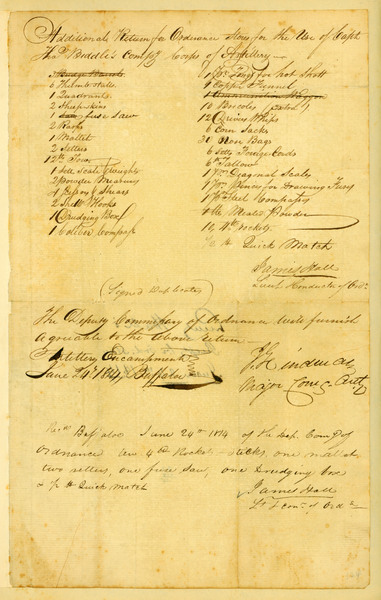 Additional Return for Ordnance Stores for the Use of Capt
Thos Biddle's Compy Corps of Artillery
6 Thumb Stalls
1 Quadrants
2 Sheepskins
1 fuse Saw
2 Rasps
1 Mallet
2 Setters
12 lb Tow
1 Sett Scale &
2 powder Measures
2 Shell Hooks
1 Drudging Box
1 Caliber Compass
1 pr Tongs for hot Shott
1 Copper Funnel
10 Bricoles
12 Drivers Whips
6 Corn Sacks
30 Nose Bags
6 Setts Forage Cords
6 lb Tallow
1 pr Diagonal Scales
1 pr Pincers for Drawing Fuses
1 pr Steel Compasses
Mealed Powder
10 4 lb Rockets
½ lb Quick Match
James Hall
Lieut Conductor of Ord.
(Signed Duplicates)
The Deputy Commissary of Ordnance will furnish
agreeable to the above return
Artillery Encampment
June 24th 1814, Buffaloe
J Hindman
Major Comg Arty
Recd Buffaloe June 24th 1814 of the Dep. Comy of
Ordnance 4 lb Rocket Sticks, one mallet
two setters, one fuse Saw, one Drudging Box
& ½ lb Quick Match
James Hall
Lt & Con. of Ordce